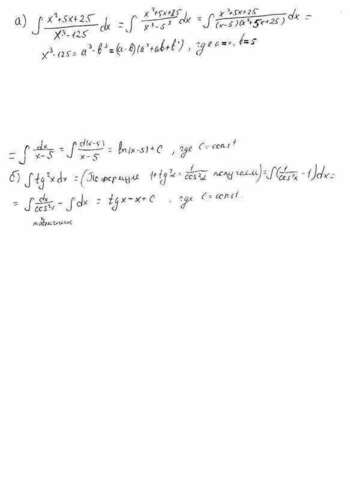 а) ∫ (x²+5x+25)/(x³-125) dx = ∫ (x²+5x+25)/(x³-5³) dx = ∫ (x²+5x+25)/((x-5)(x²+5x+25)) dx =
x³-125 = a³-b³ = (a-b)(a²+ab+b²), где a=x, b=5
= ∫ dx/(x-5) = ∫ d(x-5)/(x-5) = ln(x-5)+C, где C=const
б) ∫ tg²x dx = (По формуле 1+tg²x = 1/cos²x получаем) = ∫ (1/cos²x - 1) dx =
= ∫ dx/cos²x - ∫ dx = tgx - x + C, где C=const.
табличный